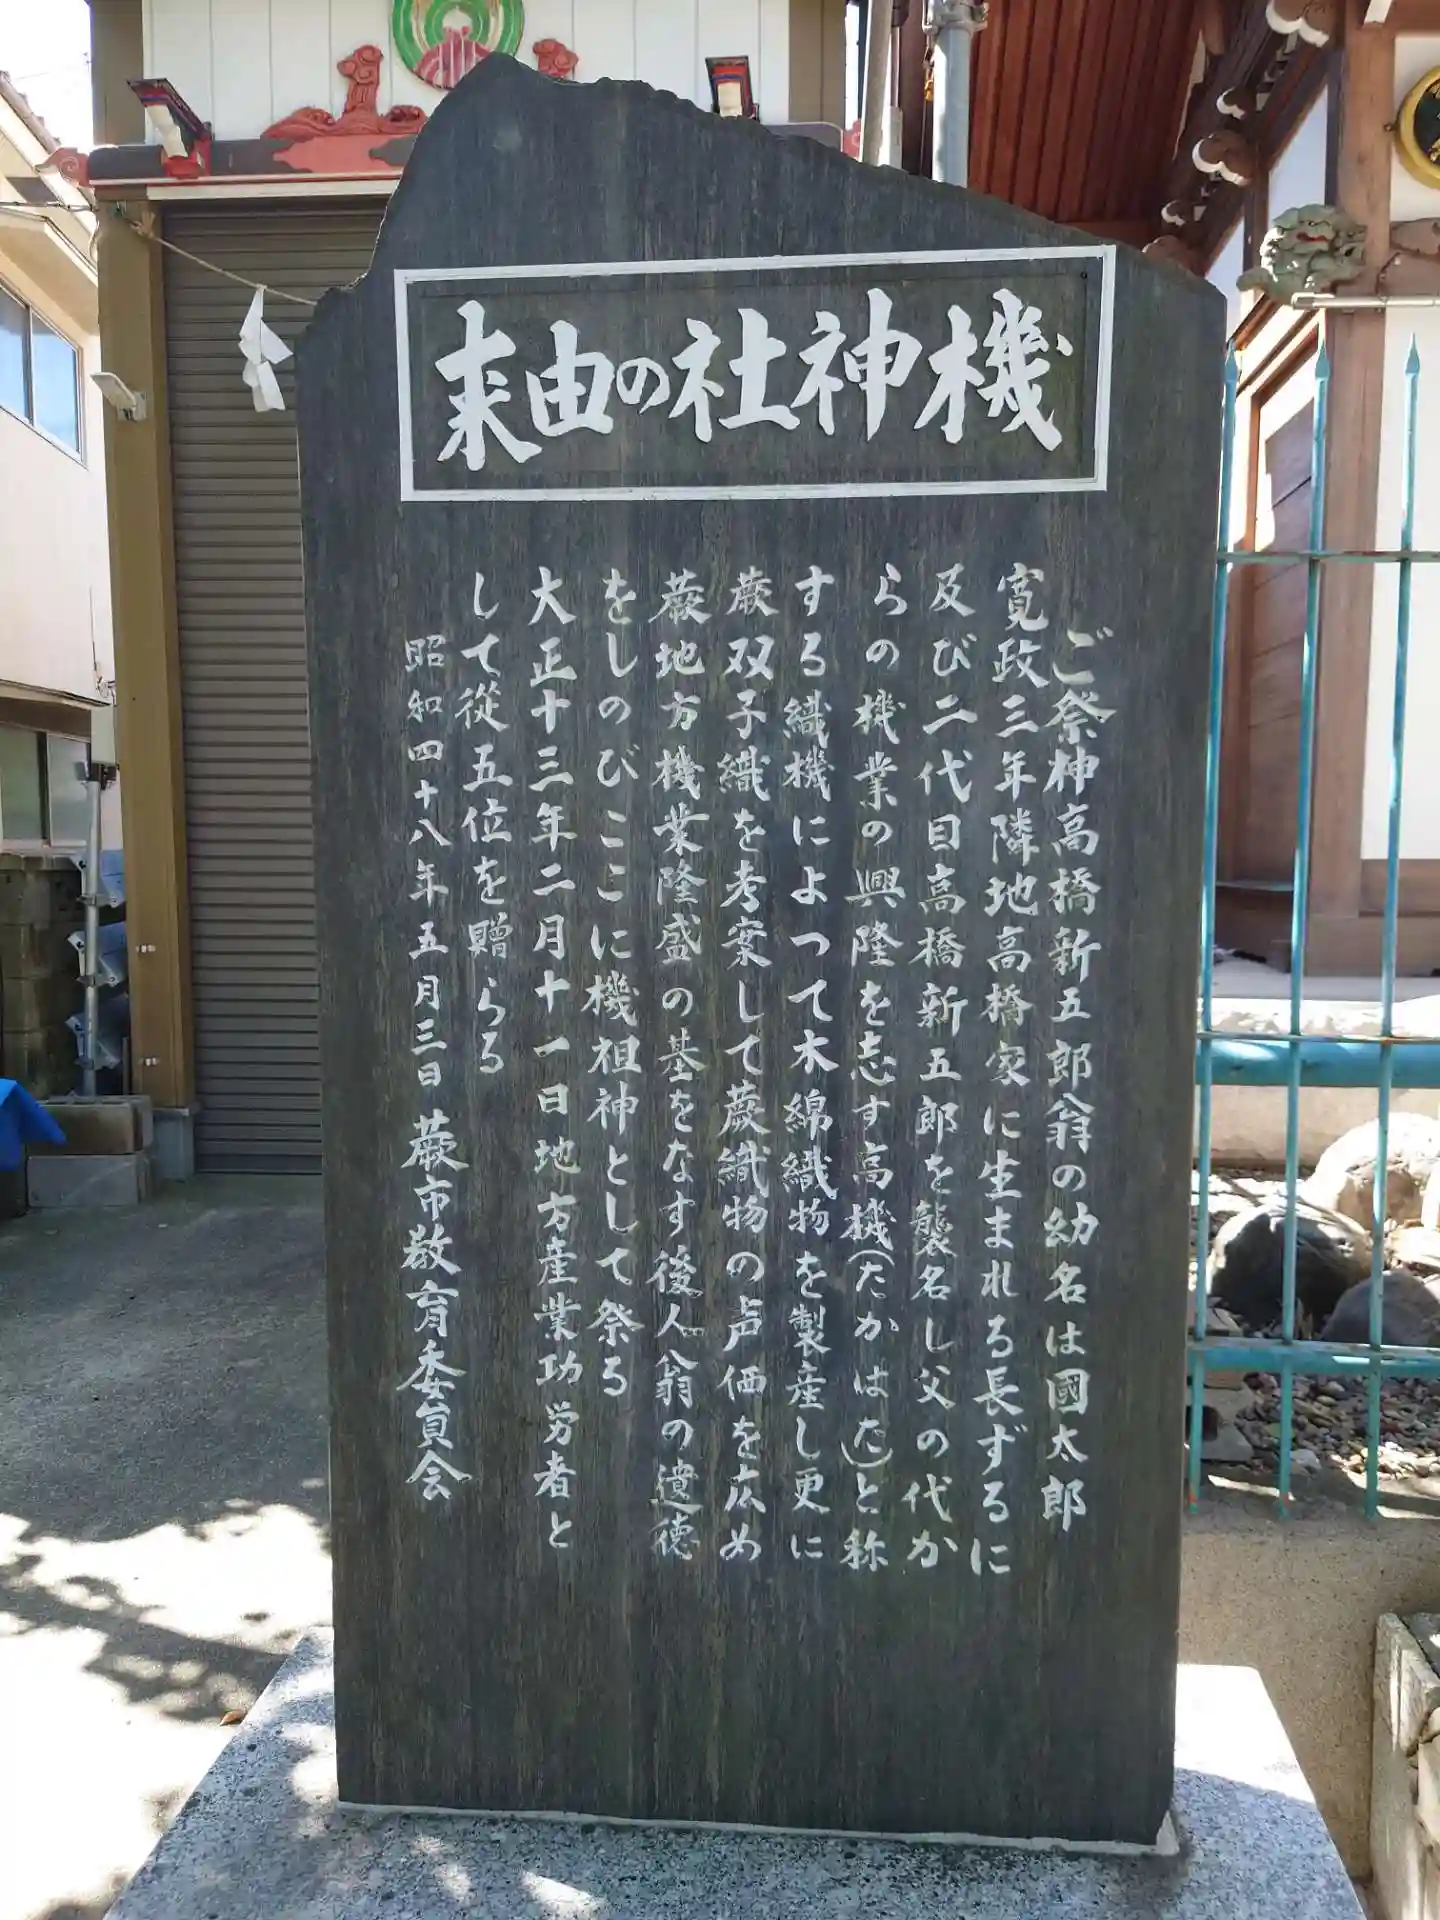 機神社の由来
ご祭神高橋新五郎翁の幼名は國太郎
寛政三年隣地高橋家に生まれる長ずるに
及び二代目高橋新五郎を襲名し父の代か
らの機業の興隆を志す高機(たかはた)と称
する織機によつて木綿織物を製産し更に
蕨双子織を考案して蕨織物の声価を広め
蕨地方機業隆盛の基をなす後人翁の遺徳
をしのびここに機祖神として祭る
大正十三年二月十一日地方産業功労者と
して從五位を贈らる
昭和四十八年五月三日 蕨市教育委員会